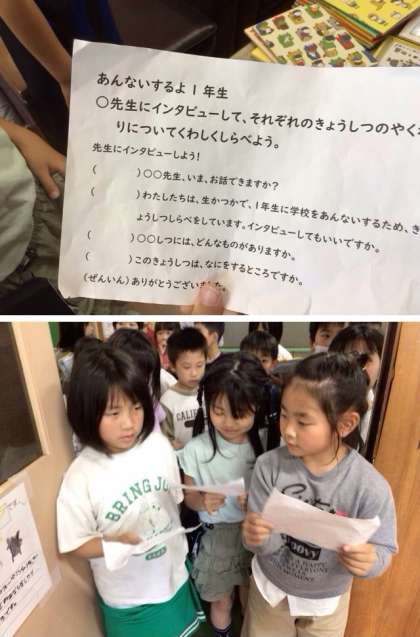 あんないするよ1年生
○先生にインタビューして、それぞれのきょうしつのやく
りについてくわしくしらべよう。
先生にインタビューしよう!
( )○○先生、いま、お話できますか?
( )わたしたちは、生かつかで、1年生に学校をあんないするため、き
ょうしつしらべをしています。インタビューしてもいいですか。
( )○○しつには、どんなものがありますか。
( )このきょうしつは、なにをするところですか。
(ぜんいん)ありがとうございました。
CALIF
BRING JO
GROOVY